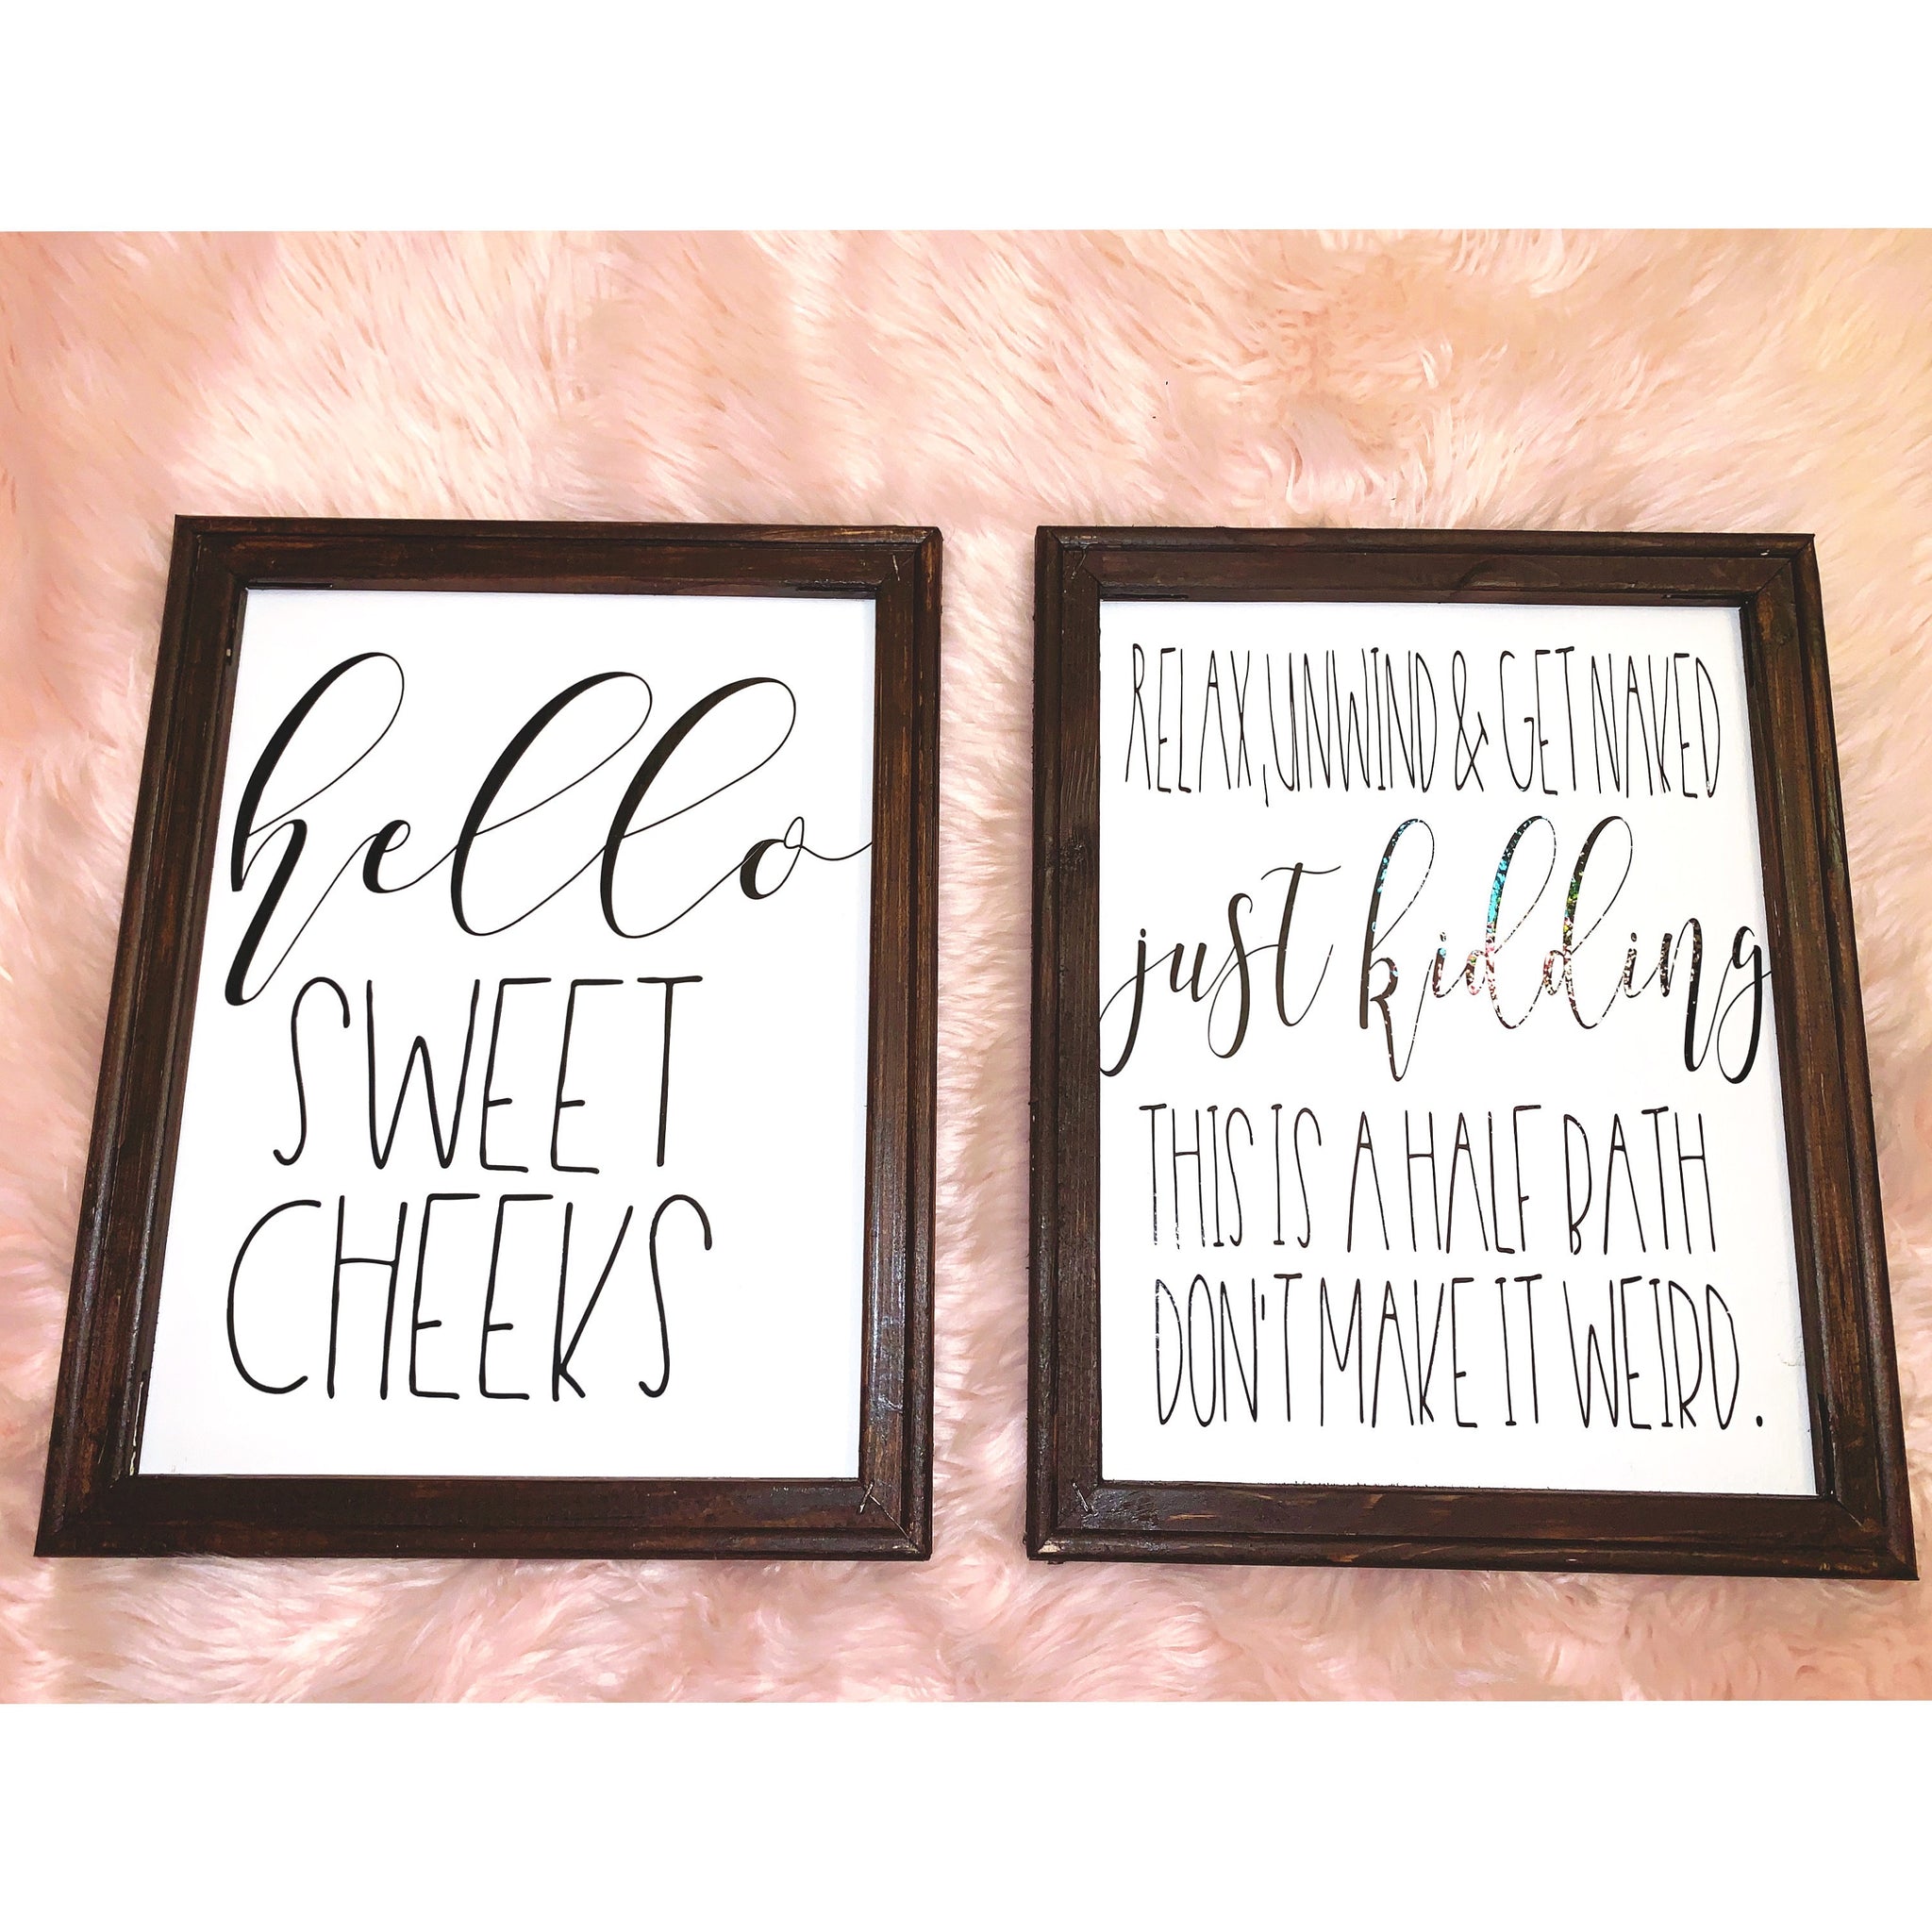 hello
SWEET
CHEEKS
RELAX, UNWIND & GET NAKED
just kidding
THIS IS A HALF BATH
DON'T MAKE IT WEIRD.